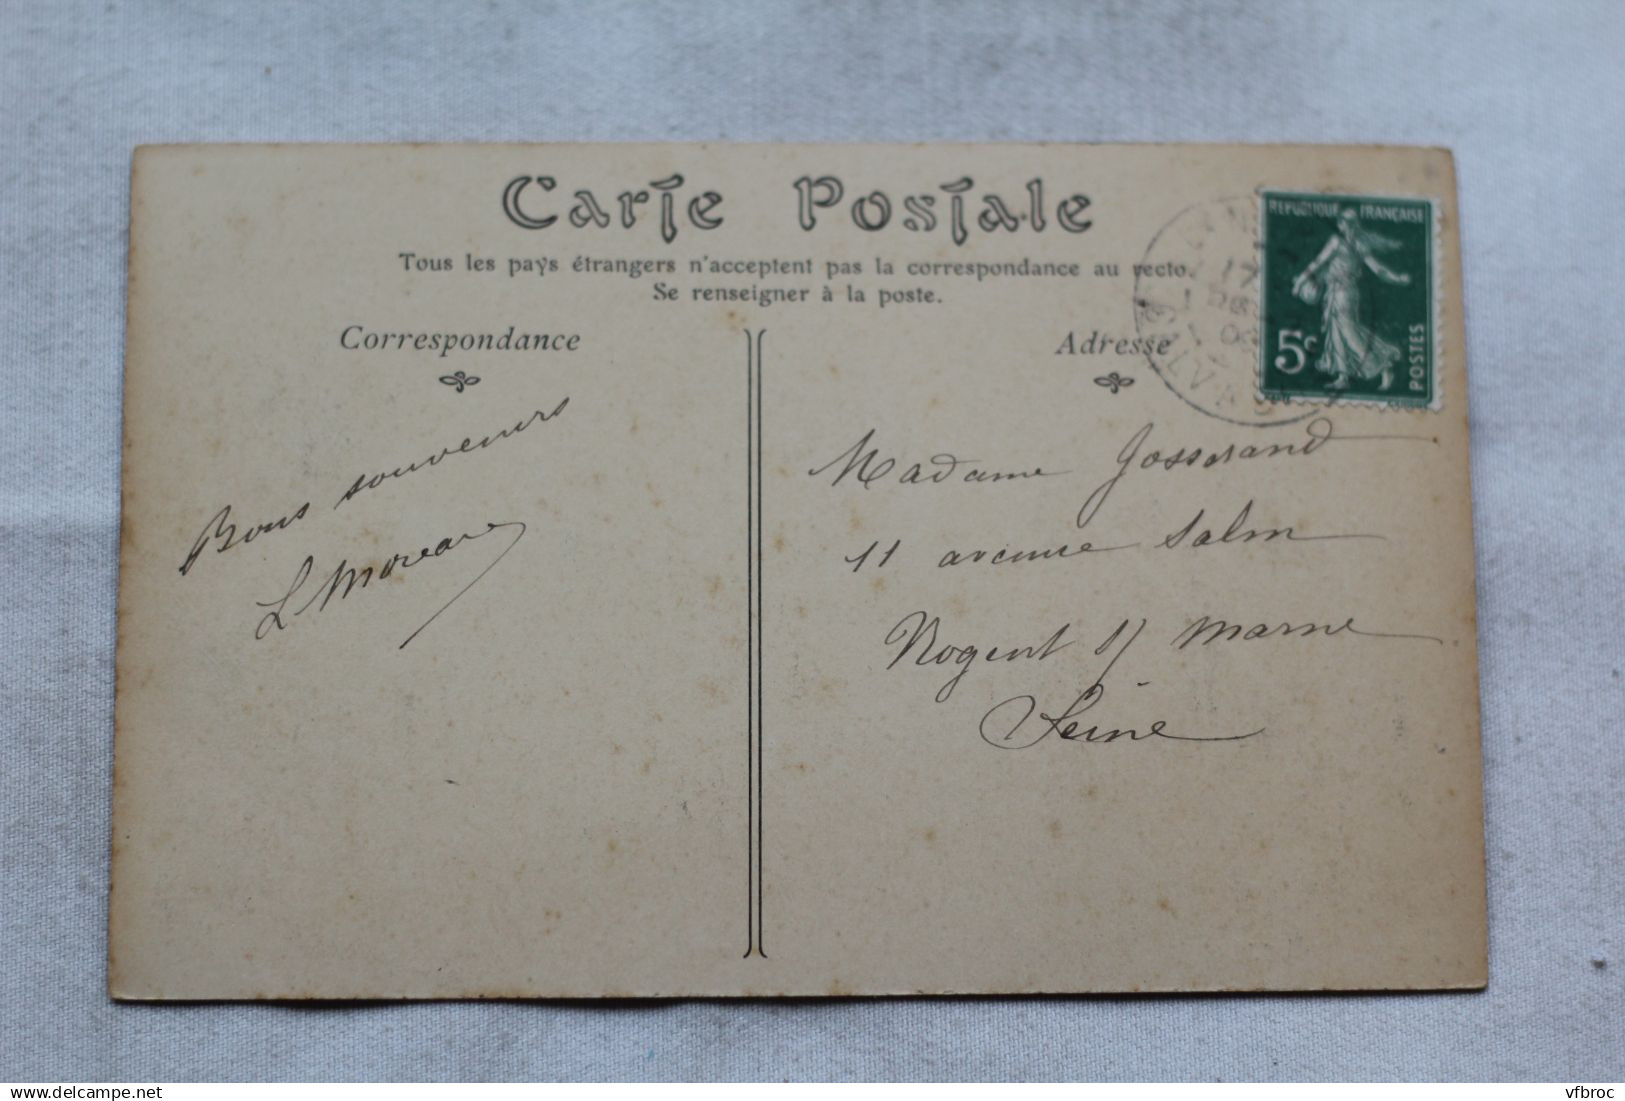 Carte Postale
Tous les pays étrangers n'acceptent pas la correspondance au recto.
Se renseigner à la poste.
Correspondance
Adresse
REPUBLIQUE FRANÇAISE
5c
POSTES
17
CALVADOS
Bons souvenirs
L Moreau
Madame Josserand
11 avenue Salm
Nogent s/ Marne
Seine
www.delcampe.net
vfbroc